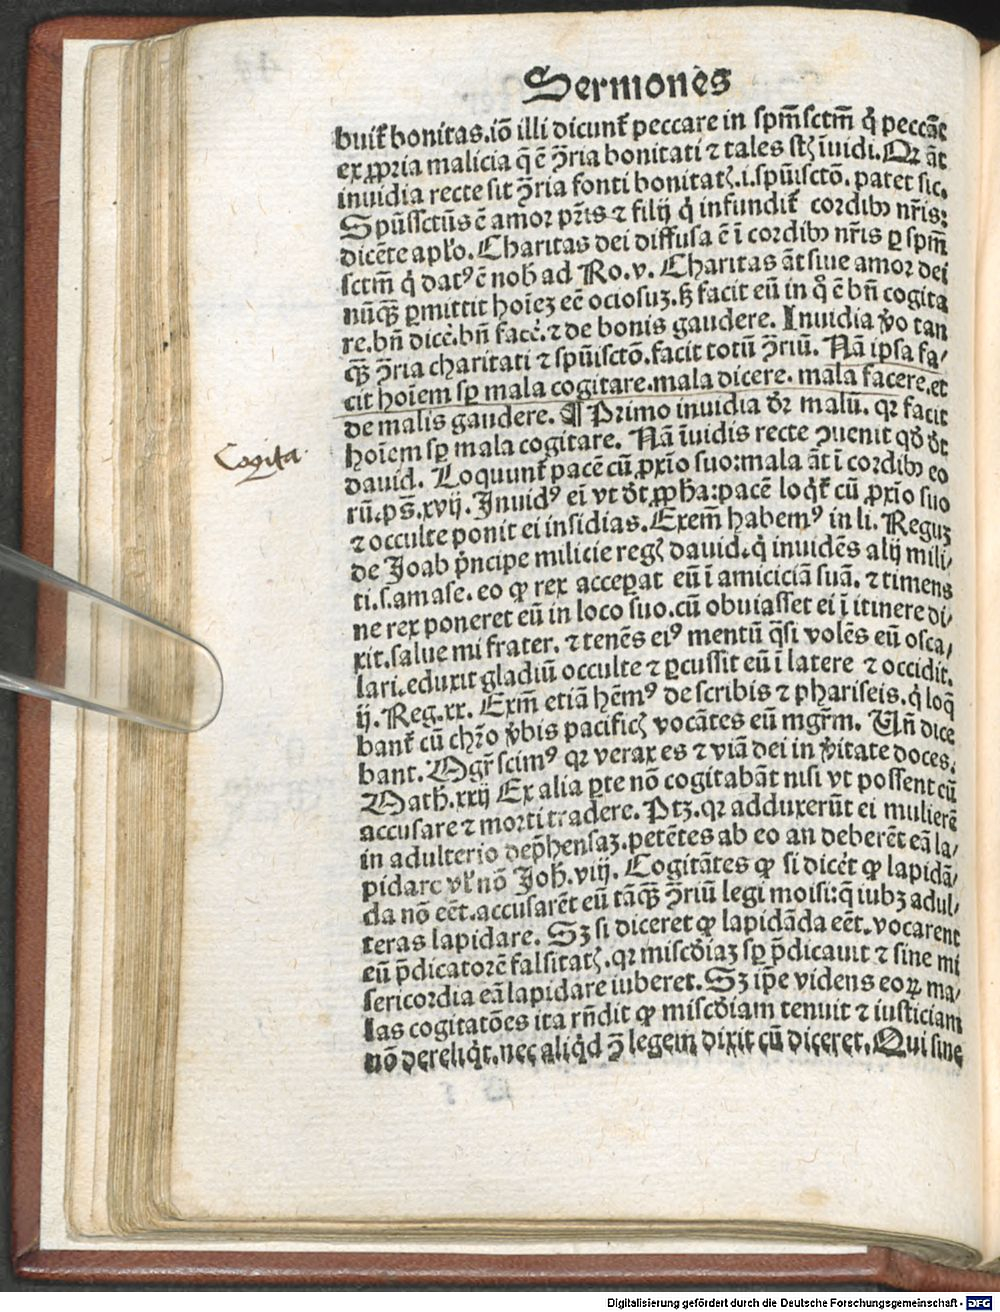 Sermones
buit̃ bonitas.iō illi dicunt̃ peccare in spm̃sctm̃ q̇ peccāt
ex ꝓpria malicia q̄ ē ↄ̄ria bonitati ⁊ tales st̄ʒ īuidi.Qꝛ āt
inuidia recte sit ↄ̄ria fonti bonitatꝭ.i.spūiscto̅.patet sic.
Spūssctūs ē amor pr̃is ⁊ filij q̇ infundit̃ cordibꝰ nr̃is:
dicēte aplo̅.Charitas dei diffusa ē ī cordibꝰ nr̃is ꝑ spm̃
sctm̃ q̇ datꝰ ē nob̄ ad Ro.v. Charitas āt siue amor dei
nūq̄ꝫ ꝑmittit hoīeʒ eē ociosuʒ.sꝫ facit eū in q̊ ē bn̄ cogita
re.bn̄ dicē.bn̄ facē.⁊ de bonis gaudere. Inuidia v̊o tan
q̄ꝫ ↄ̄ria charitati ⁊ spūiscto̅.facit totū ↄ̄riū. Nā ipsa fa/
cit hoīem sꝑ mala cogitare.mala dicere. mala facere.et
de malis gaudere. ¶ Primo inuidia dr̃ malū. qꝛ facit
hoīem sꝑ mala cogitare. Nā īuidis recte ↄuenit qd̄ dt̃
Cogita
dauid. Loquunt̃ pacē cū ꝓxīo suo:mala āt ī cordibꝰ eo
rū.ps̄.xvij. Inuidꝰ eī vt dt̃ ꝓph̄a:pacē loq̇t̃ cū ꝓxīo suo
⁊ occulte ponit ei insidias.Exem̄ habemꝰ in li. Reguʒ
de Joab p̄ncipe milicie regꝭ dauid.q̇ inuidēs alij mili/
ti.s.amase. eo ꝙ rex acceꝑat eū ī amiciciā suā. ⁊ timens
ne rex poneret eū in loco suo.cū obuiasset ei ī itinere di/
xit.salue mi frater. ⁊ tenēs eiꝰ mentū q̄si volēs eū oscu/
lari.eduxit gladiū occulte ⁊ ꝑcussit eū ī latere ⁊ occidit.
ij. Reg.xx. Exm̄ etiā hēmꝰ de scribis ⁊ phariseis.q̇ loq̄
bant̃ cū chr̃o v̊bis pacificꝭ vocātes eū mgr̃m. Vn̄ dice
bant. Mgr̃ scimꝰ qꝛ verax es ⁊ viā dei in v̊itate doces.
Math.xxij Ex alia ꝑte nō cogitabāt nisi vt possent cū
accusare ⁊ morti tradere. Ptʒ.qꝛ adduxerūt ei mulierē
in adulterio dep̄hensaʒ.petētes ab eo an deberēt eā la/
pidare vl̓ nō Joh̄.viij. Cogitātes ꝙ si dicēt ꝙ lapidā/
da nō eēt.accusarēt eū tāq̄ꝫ ↄ̄riū legi moisi:q̄ iubʒ adul/
teras lapidare. Sʒ si diceret ꝙ lapidāda eēt.vocarent
eū p̄dicatorē falsitatꝭ.qꝛ misc̄diaʒ sꝑ p̄dicauit ⁊ sine mi
sericordia eā lapidare iuberet.Sʒ ip̄e videns eoꝝ ma/
las cogitatōes ita rn̄dit ꝙ misc̄diam tenuit ⁊ iusticiam
nō dereliq̇t.nec aliq̇d ↄ̄ legem dixit cū diceret.Qui sine
Digitalisierung gefördert durch die Deutsche Forschungsgemeinschaft - DFG